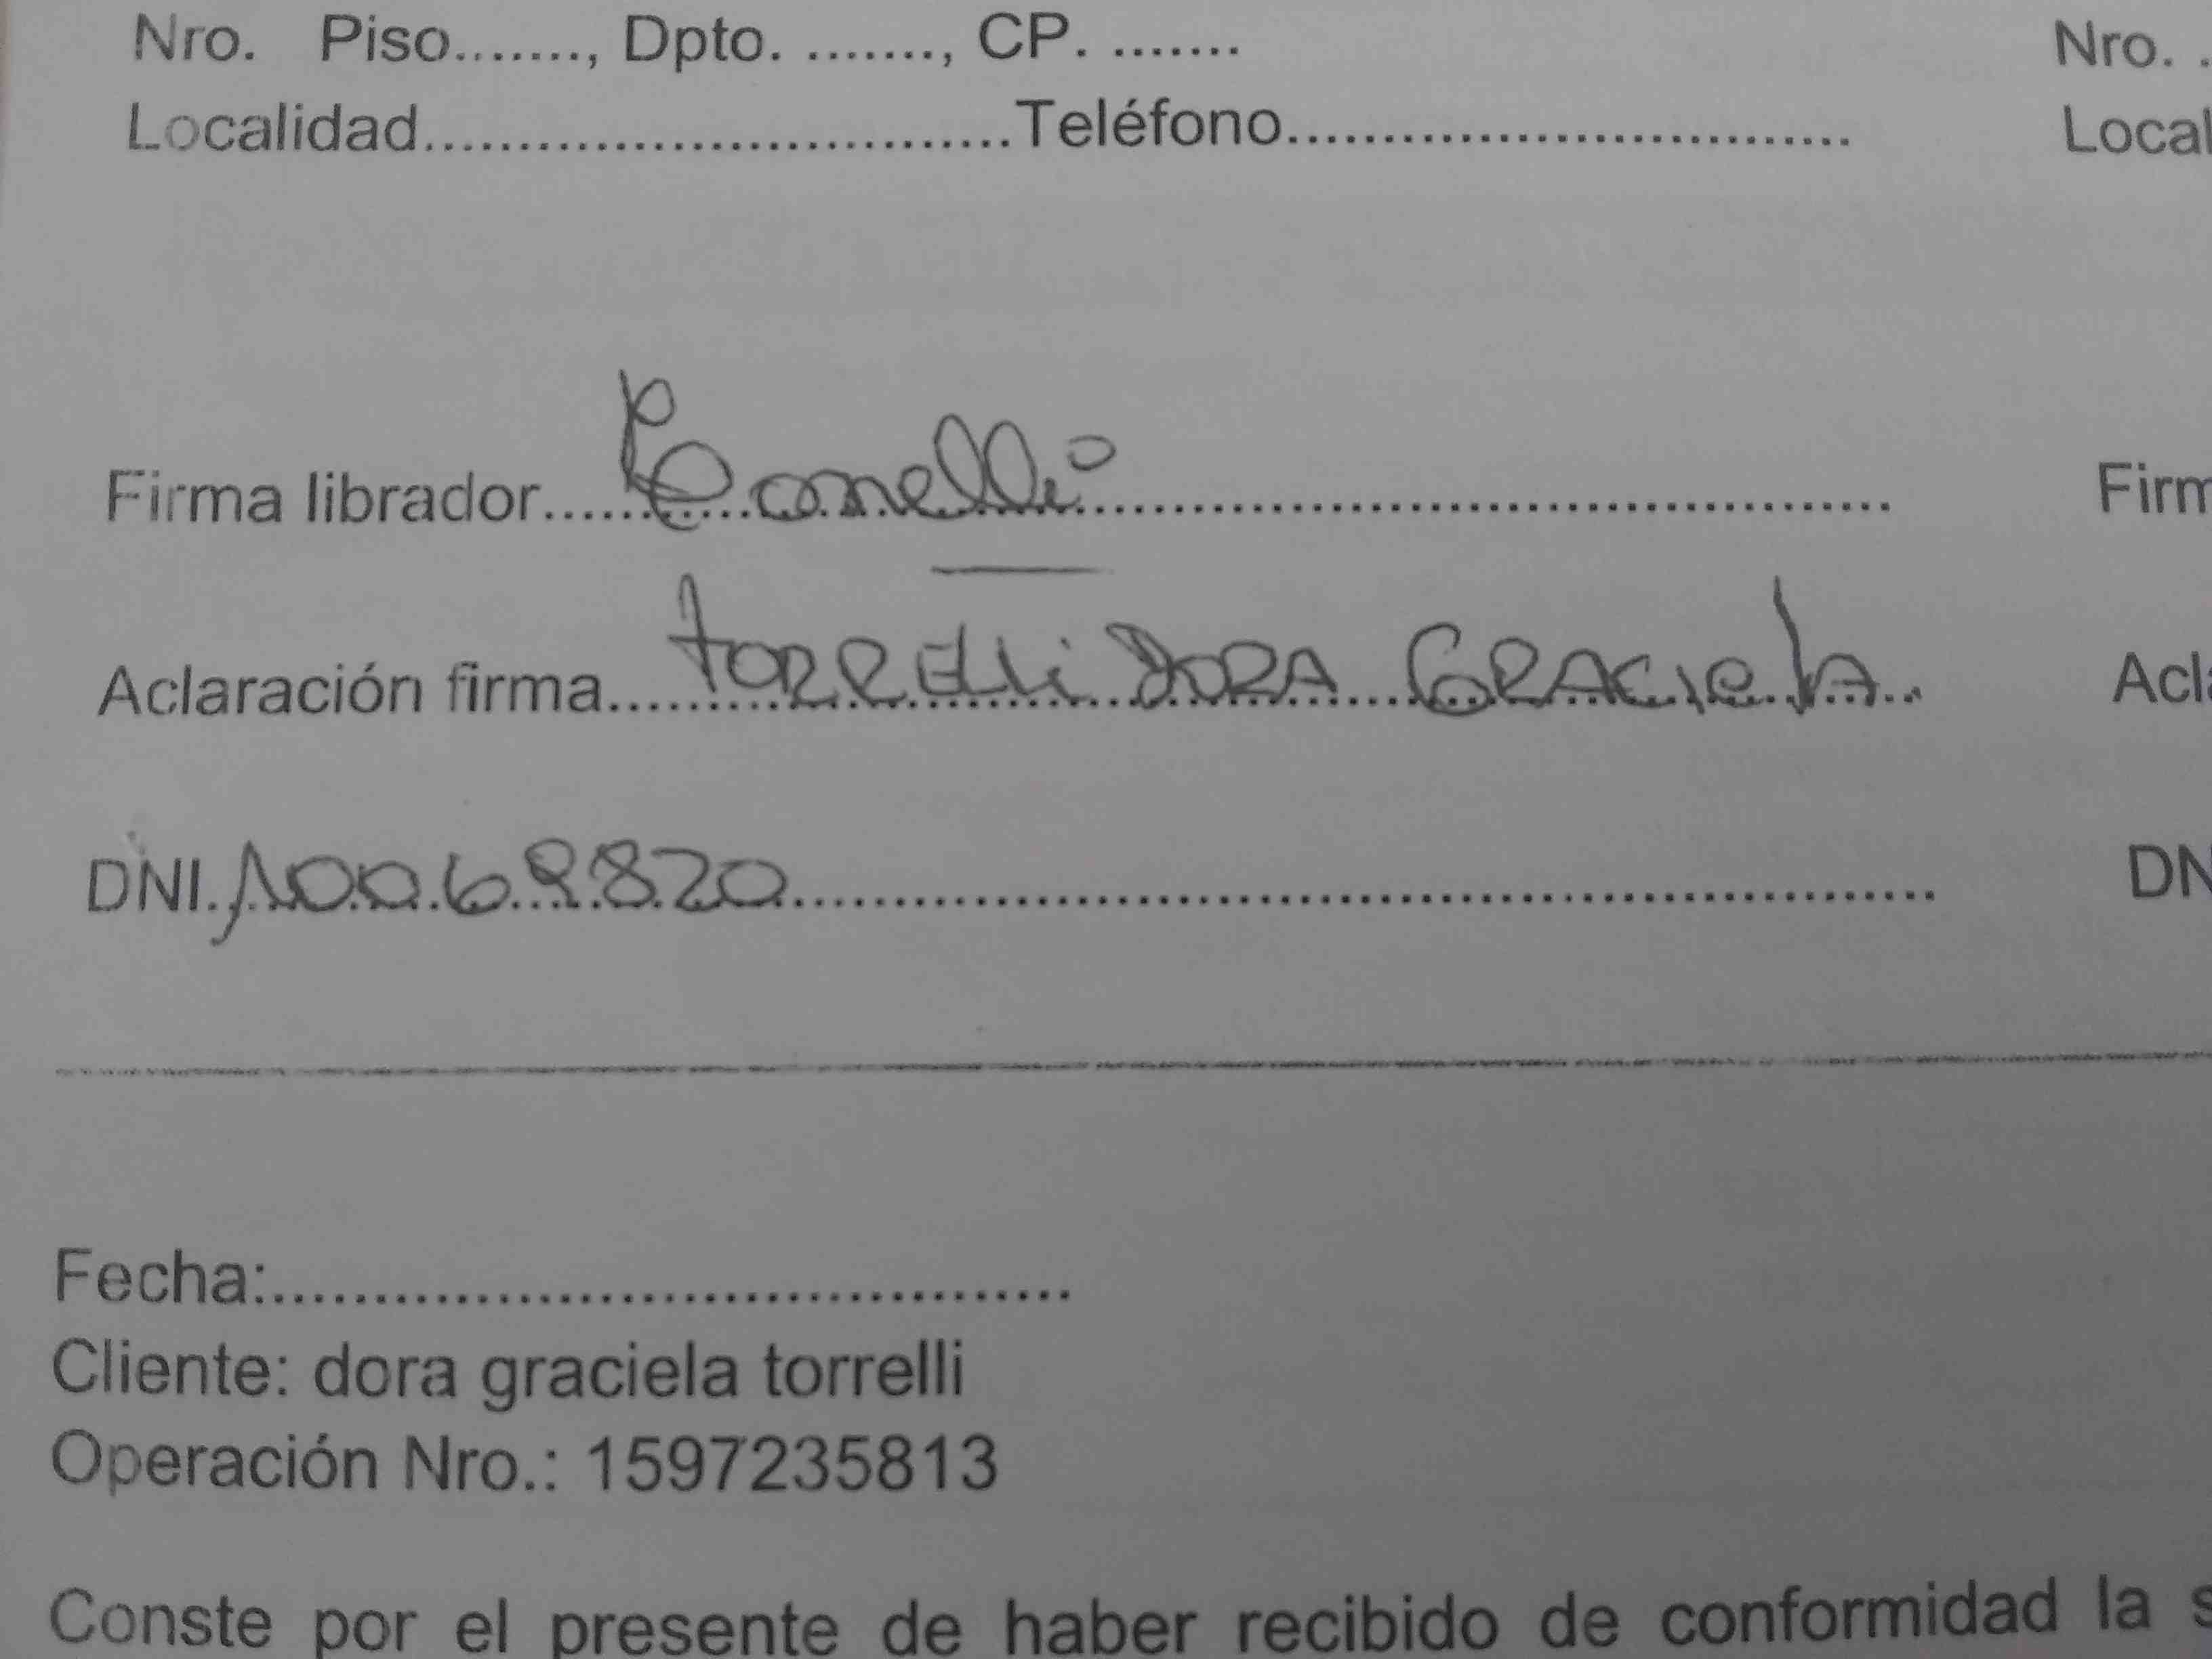 Nro. Piso......., Dpto. ......., CP. ....... Nro. .
Localidad...............................Teléfono.............................. Local
Firma librador.................................................. Firm
Aclaración firma....TORRELLI DORA GRACIELA.. Acla
DNI.10069820.................................................. DN
Fecha:........................................
Cliente: dora graciela torrelli
Operación Nro.: 1597235813
Conste por el presente de haber recibido de conformidad la s